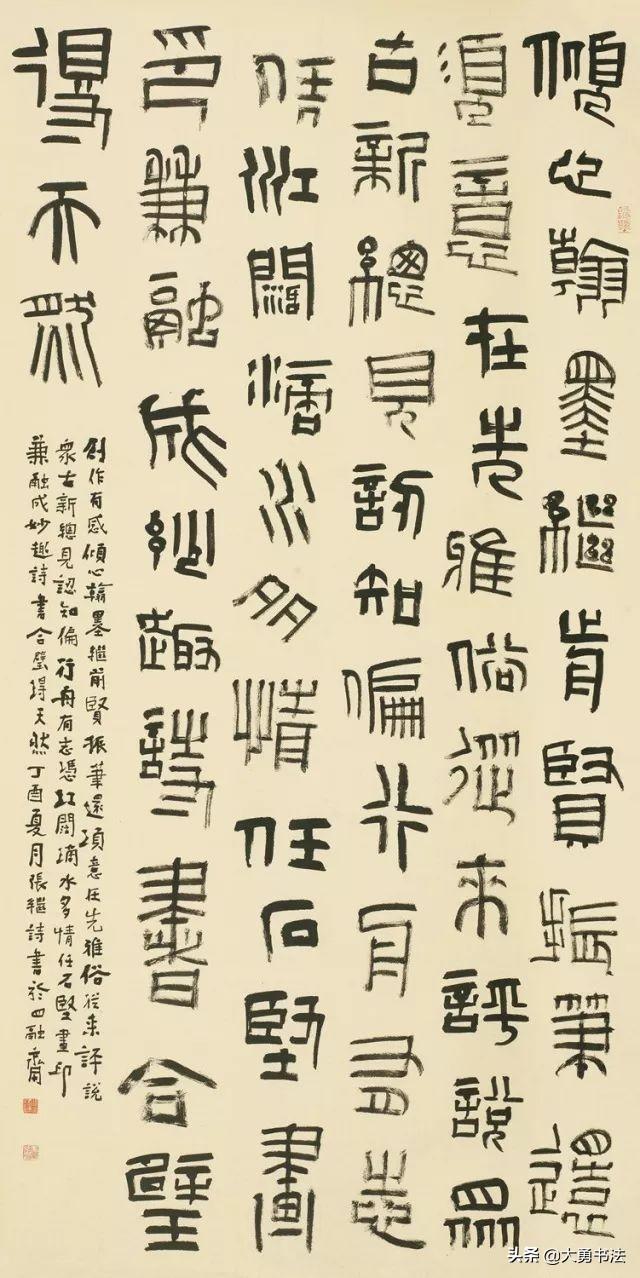 傾心翰墨繼前賢振筆還
須意在先雅俗從來評說眾
古新總見認知偏行舟有志
憑江闊滴水多情任石堅畫
印兼融成妙趣詩書合璧
得天然
創作有感傾心翰墨繼前賢振筆還須意在先雅俗從來評說
眾古新總見認知偏行舟有志憑江闊滴水多情任石堅畫印
兼融成妙趣詩書合璧得天然丁酉夏月張繼詩書於四融齋
头条 @大勇书法